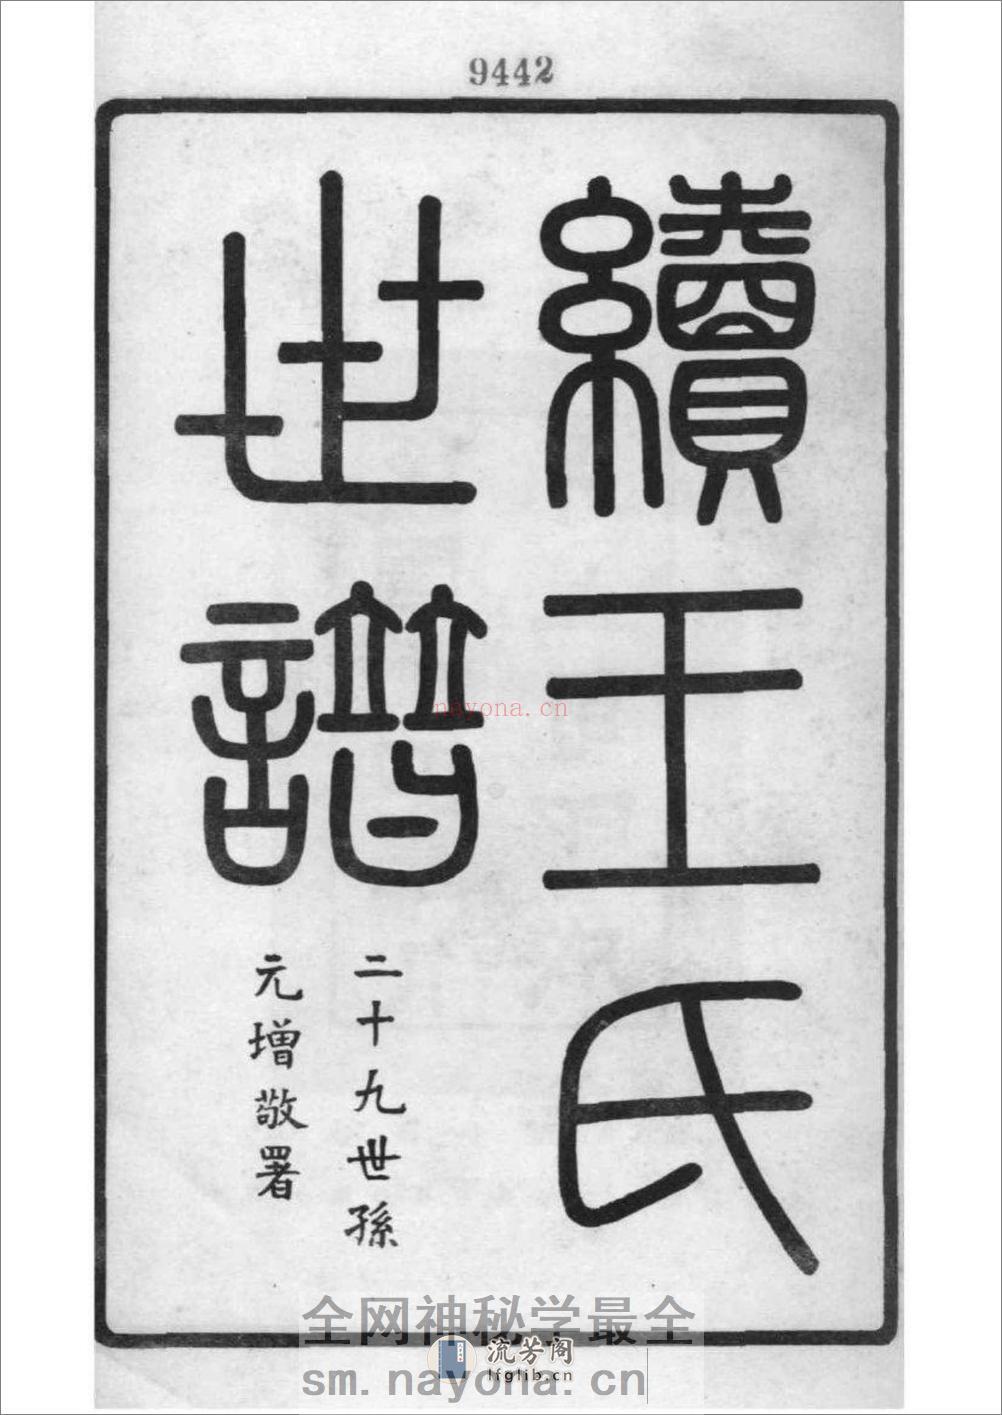 9442
續王氏
世譜
二十九世孫
元增敬署
nayona.cn
全网神秘学最全
流芳阁
lfglib.cn
sm.nayona.cn